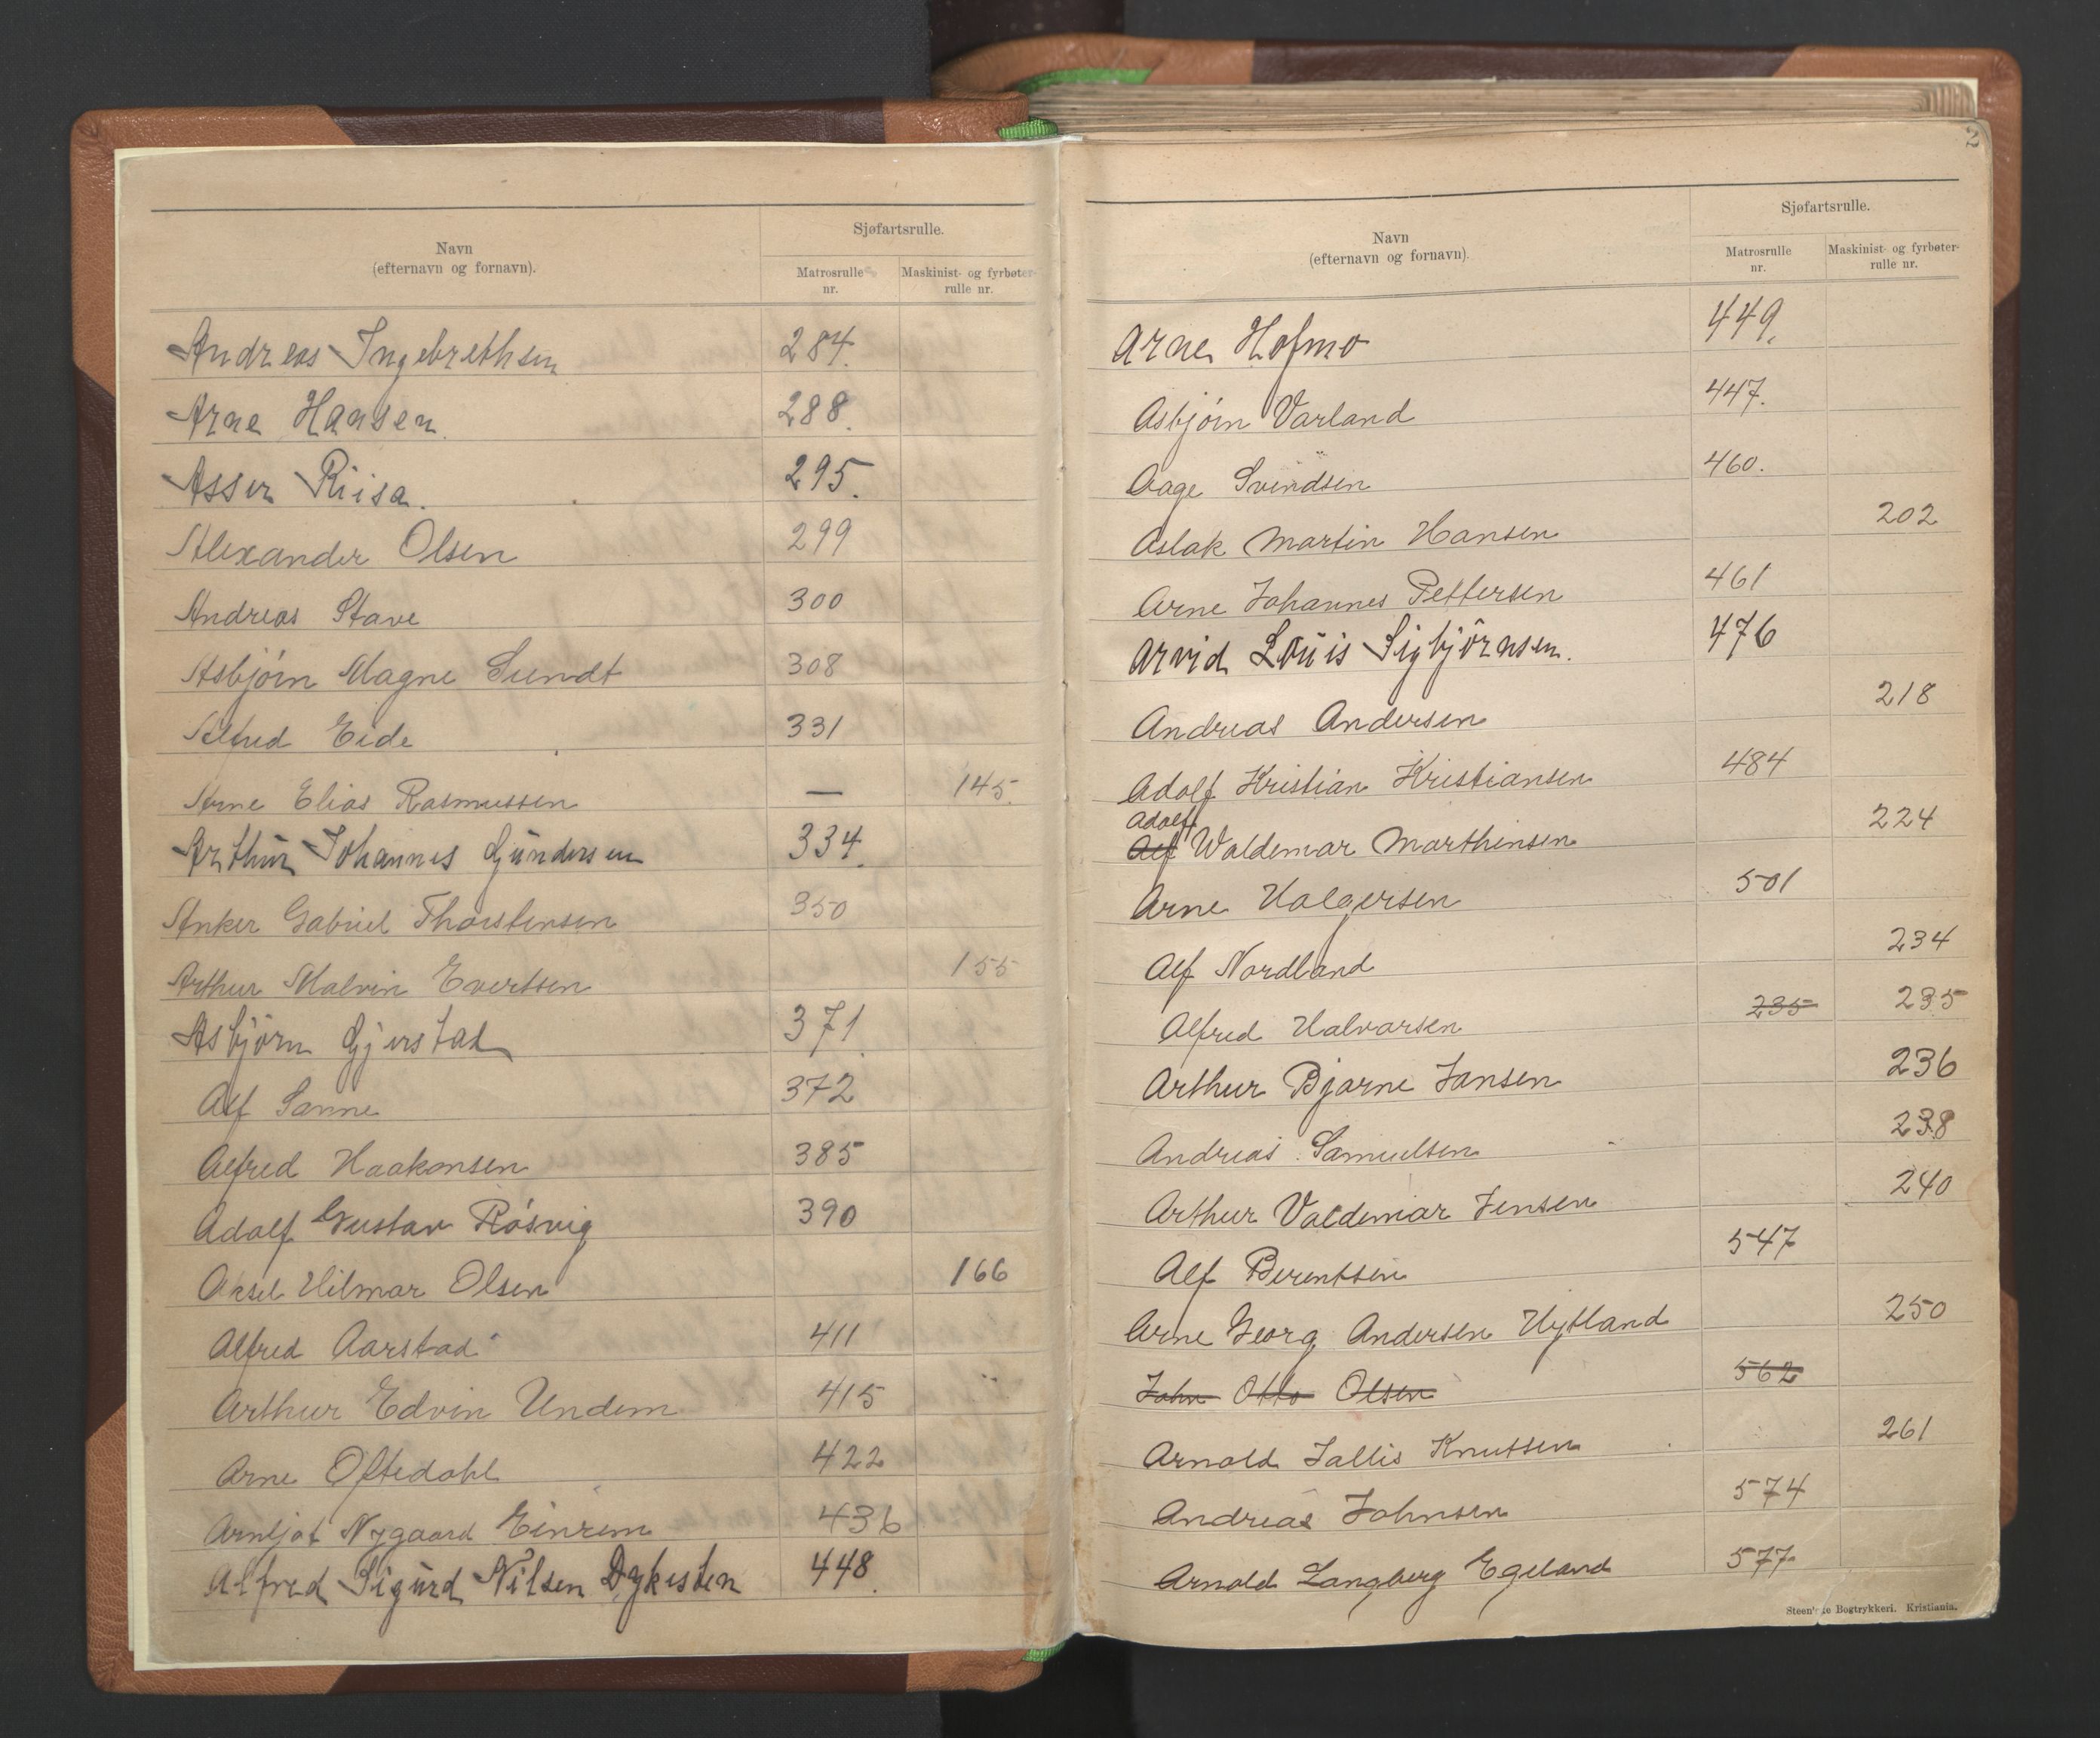 Navn
(efternavn og fornavn).
Sjøfartsrulle.
Matrosrulle nr.
Maskinist- og fyrbøter-rulle nr.
Andreas Ingebrethsen 284.
Arne Hansen. 288.
Asser Riisa. 295.
Alexander Olsen 299
Andreas Stave 300
Asbjörn Magne Sundt 308
Alfred Eide 331
Arne Elias Rasmussen — 145.
Arthur Johannes Gundersen 334.
Anker Gabriel Thorstensen 350
Arthur Malvin Evertsen 155
Asbjörn Gjerstad 371.
Alf Sanne 372
Alfred Haakonsen 385
Adolf Gustav Rösvig 390
Aksel Hilmar Olsen 166
Alfred Aarstad 411
Arthur Edvin Undem 415
Arne Oftedahl 422
Arnljot Nygaard Einrem 436
Alfred Sigurd Nilsen Dykesten 448.
2
Navn
(efternavn og fornavn).
Sjøfartsrulle.
Matrosrulle nr.
Maskinist- og fyrbøter-rulle nr.
Arne Hofmo 449.
Asbjörn Varland 447.
Aage Svendsen 460.
Aslak Martin Hansen 202
Arne Johannes Pettersen 461
Arvid Louis Sigbjörnsen. 476
Andreas Andersen 218
Adolf Kristian Kristiansen 484
Adolf
Alf Waldemar Marthinsen 224
Arne Holgersen 501
Alf Nordland 234
Alfred Halvorsen 235 235
Arthur Bjarne Jansen 236
Andreas Samuelsen 238
Arthur Valdemar Jensen 240
Alf Berentsen 547
Arne Georg Andersen Hytland 250
John Otto Olsen 562
Arnold Jallis Knutsen 261
Andreas Johnsen 574
Arnold Langberg Egeland 577
Steen'ske Bogtrykkeri. Kristiania.